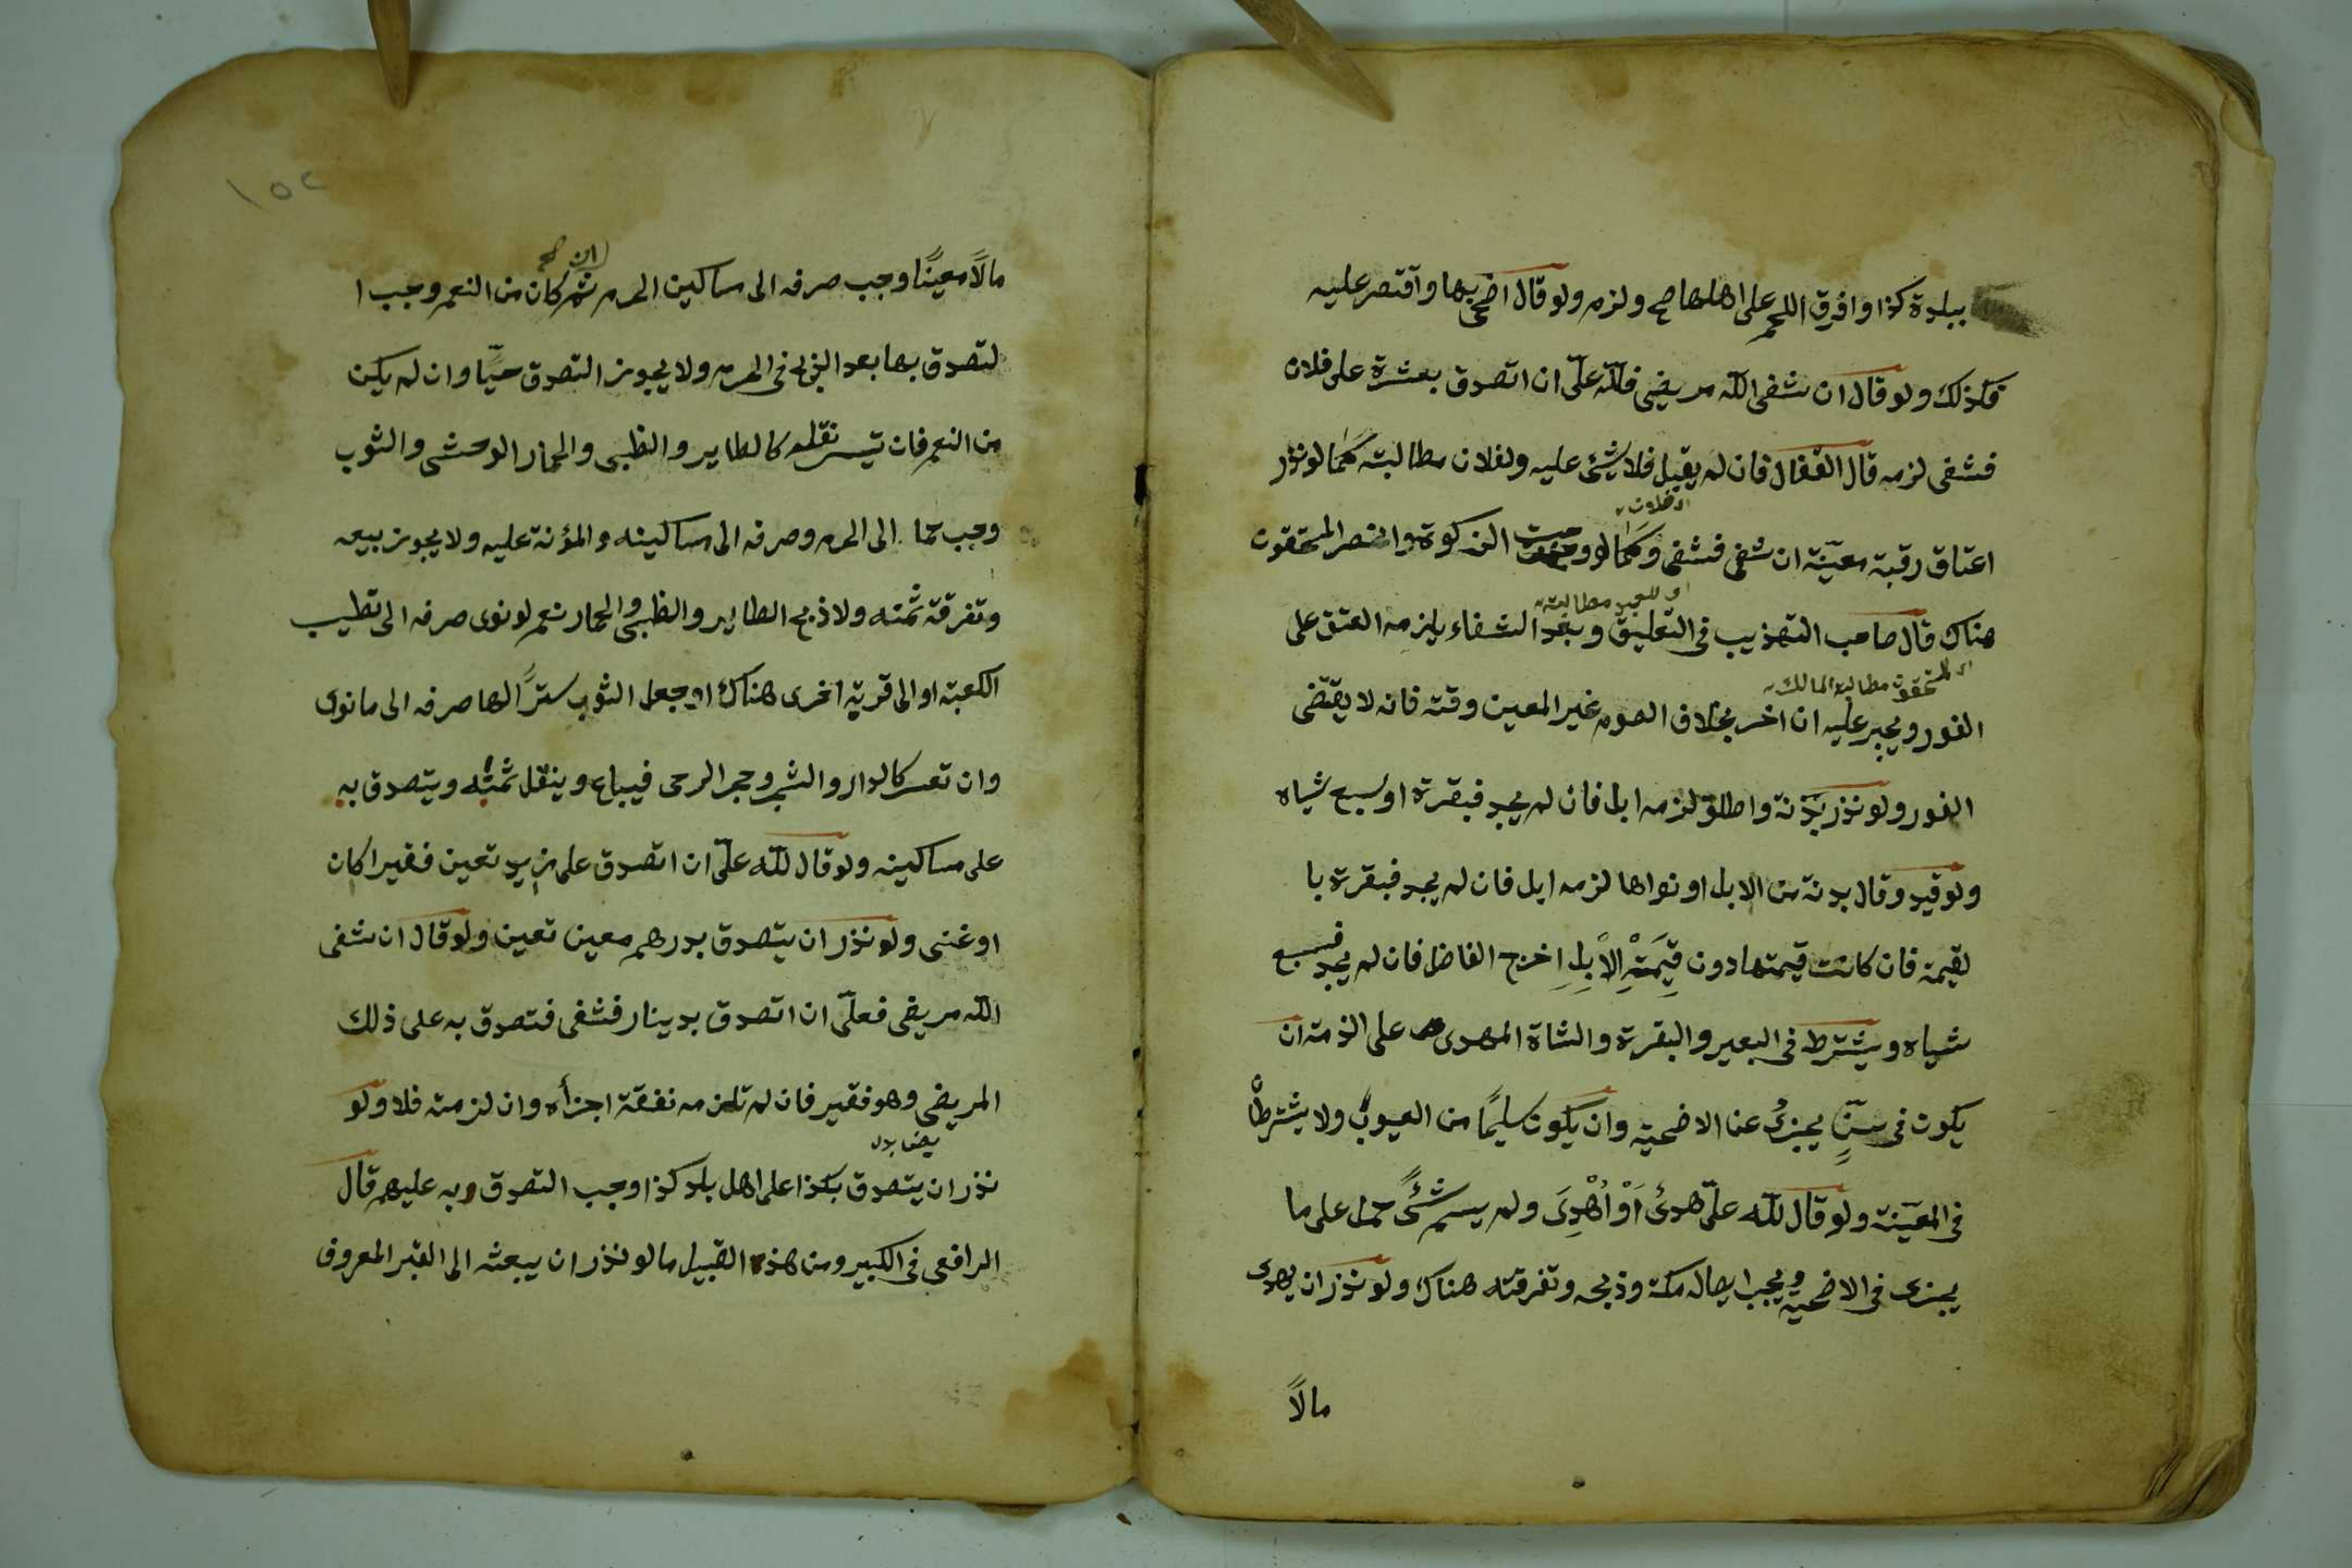 ببلدة كذا وافرق اللحم على اهلها صح ولزم ولو قال اضحى بها واقتصر عليه
فكذلك ولو قال ان شفى الله مريضى فلله علىّ ان اتصدق بعشرة على فلان
فشفى لزمه قال القفال فان لم يقبل فلا شئ عليه ولفلان مطالبته كما لو نذر
اى فلان
اعتاق رقبة معينة ان شفى فشفى وكما لو وجبت الزكوة وانحصر المستحقون
او للعبد مطالبته
هناك قال صاحب التهذيب فى التعليق وبعد الشفاء يلزمه العتق على
المستحقون مطالبة المالك
الفور ويجبر عليه ان اخر بخلاف الصوم غير المعين وقته فانه لا يقتضى
الفور ولو نذر بدنة واطلق لزمه ابل فان لم يجد فبقرة او سبع شياه
ولو قيد وقال بدنة من الابل او نواها لزمه ابل فان لم يجد فبقرة با
لقيمة فان كانت قيمتها دون قِيمَةِ الْاِبِلِ اخرج الفاضل فان لم يجد فسبع
شياه ويشترط فى البعير والبقرة والشاة المهدى على الذمة ان
يكون فى سنّ يجزئ عن الاضحية وان يكون سليمًا من العيوب ولا يشترطا
فى المعينة ولو قال لله علىّ هدىٌ اَوْ اُهْدِىَ ولم يسم شئًا حمل على ما
يجزى فى الاضحية ويجب ايصاله مكة وذبحه وتفرقته هناك ولو نذر ان يهدى
مالًا
١٥٢
مالًا معينًا وجب صرفه الى مساكين الحرم ثم ان كان من النعم وجب ا
لتصدق بها بعد الذبح فى الحرم ولا يجوز التصدق حيًّا وان لم يكن
من النعم فان تيسر نقله كالطاير والظبى والحمار الوحشى والثوب
وجب حما الى الحرم وصرفه الى مساكينه والمؤنة عليه ولا يجوز بيعه
وتفرقة ثمنه ولا ذبح الطاير والظبى والحمار نعم لو نوى صرفه الى تطييب
الكعبة او الى قربة اخرى هناك او جعل الثوب سترًا لها صرفه الى ما نوى
وان تعسر كالدار والشجر وحجر الرحى فيباع وينقل ثمنه ويتصدق به
على مساكينه ولو قال لله علىّ ان اتصدق على زيد تعين فقيرا كان
او غنى ولو نذر ان يتصدق بدرهم معين تعين ولو قال ان شفى
الله مريضى فعلىّ ان اتصدق بدينار فشفى فتصدق به على ذلك
المريض وهو فقير فان لم تلزمه نفقة اجزأه وان لزمته فلا ولو
نذر ان يتصدق بكذا على اهل بلد كذا وجب التصدق به عليهم قال
الرافعى فى الكبير ومن هذا القبيل ما لو نذر ان يبعثه الى القبر المعروف